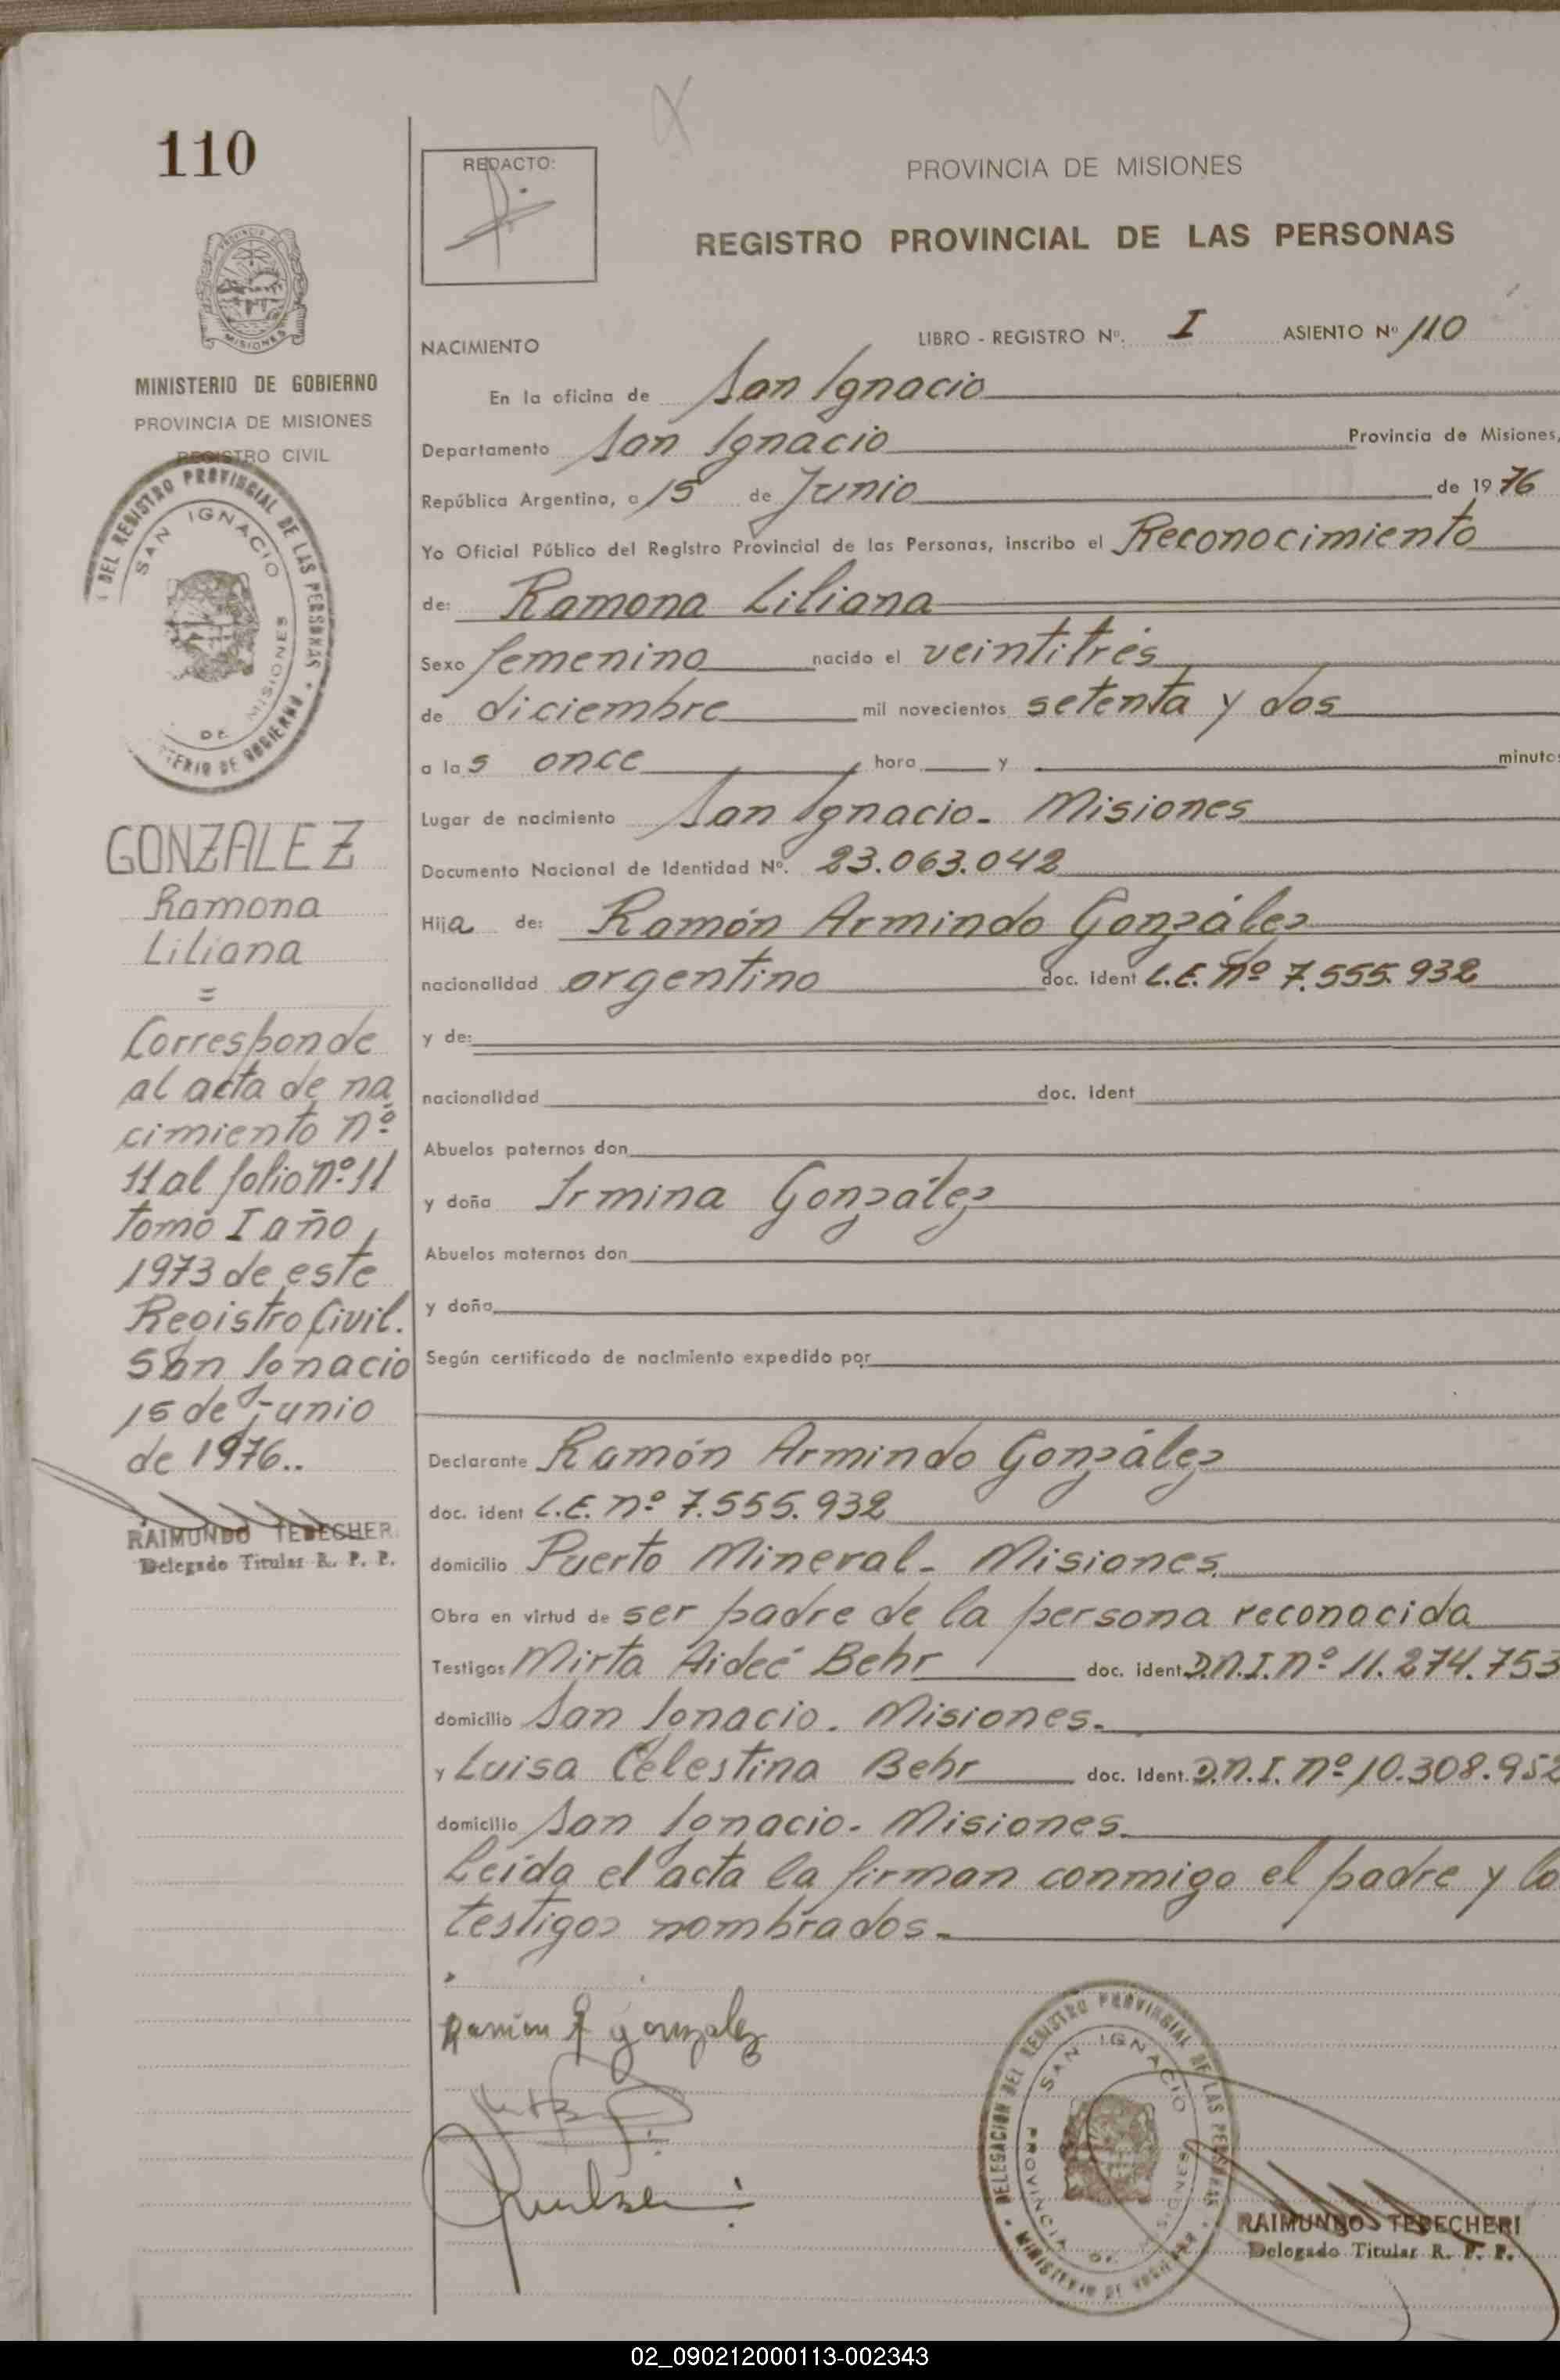 110
REDACTO:
PROVINCIA DE MISIONES
REGISTRO PROVINCIAL DE LAS PERSONAS
PROVINCIA DE
MISIONES
MINISTERIO DE GOBIERNO
PROVINCIA DE MISIONES
REGISTRO CIVIL
DEL REGISTRO PROVINCIAL DE LAS PERSONAS
SAN IGNACIO
DE MISIONES
TERIO DE GOBIERNO
NACIMIENTO
LIBRO - REGISTRO Nº. I ASIENTO Nº 110
En la oficina de San Ignacio
Departamento San Ignacio Provincia de Misiones,
República Argentina, a 15 de Junio de 1976
Yo Oficial Público del Registro Provincial de las Personas, inscribo el Reconocimiento
de: Ramona Liliana
Sexo femenino nacido el veintitrés
de diciembre mil novecientos setenta y dos
a las once hora y minutos
Lugar de nacimiento San Ignacio - Misiones
Documento Nacional de Identidad Nº. 23.063.042
Hija de: Ramón Armindo González
nacionalidad argentino doc. ident L.E. nº 7.555.932
y de:
nacionalidad doc. ident
Abuelos paternos don
y doña Irmina González
Abuelos maternos don
y doña
Según certificado de nacimiento expedido por
Declarante Ramón Armindo González
doc. ident L.E. nº 7.555.932
domicilio Puerto Mineral - Misiones
Obra en virtud de ser padre de la persona reconocida
Testigos Mirta Aideé Behr doc. ident D.N.I. nº 11.274.753
domicilio San Ignacio. Misiones.
y Luisa Celestina Behr doc. Ident. D.N.I. nº 10.308.952
domicilio San Ignacio - Misiones.
Leída el acta la firman conmigo el padre y lo
testigos nombrados.-
GONZALEZ
Ramona
Liliana
=
Corresponde
al acta de na
cimiento nº
11 al folio nº 11
tomo I año
1973 de este
Registro Civil.
San Ignacio
15 de Junio
de 1976..
RAIMUNDO TEBECHERI
Delegado Titular R. P. P.
Ramon A gonzalez
DELEGACION DEL REGISTRO PROVINCIAL DE LAS PERSONAS
SAN IGNACIO
PROVINCIA DE MISIONES
MINISTERIO DE GOBIERNO
RAIMUNDO TEBECHERI
Delegado Titular R. P. P.
02_090212000113-002343